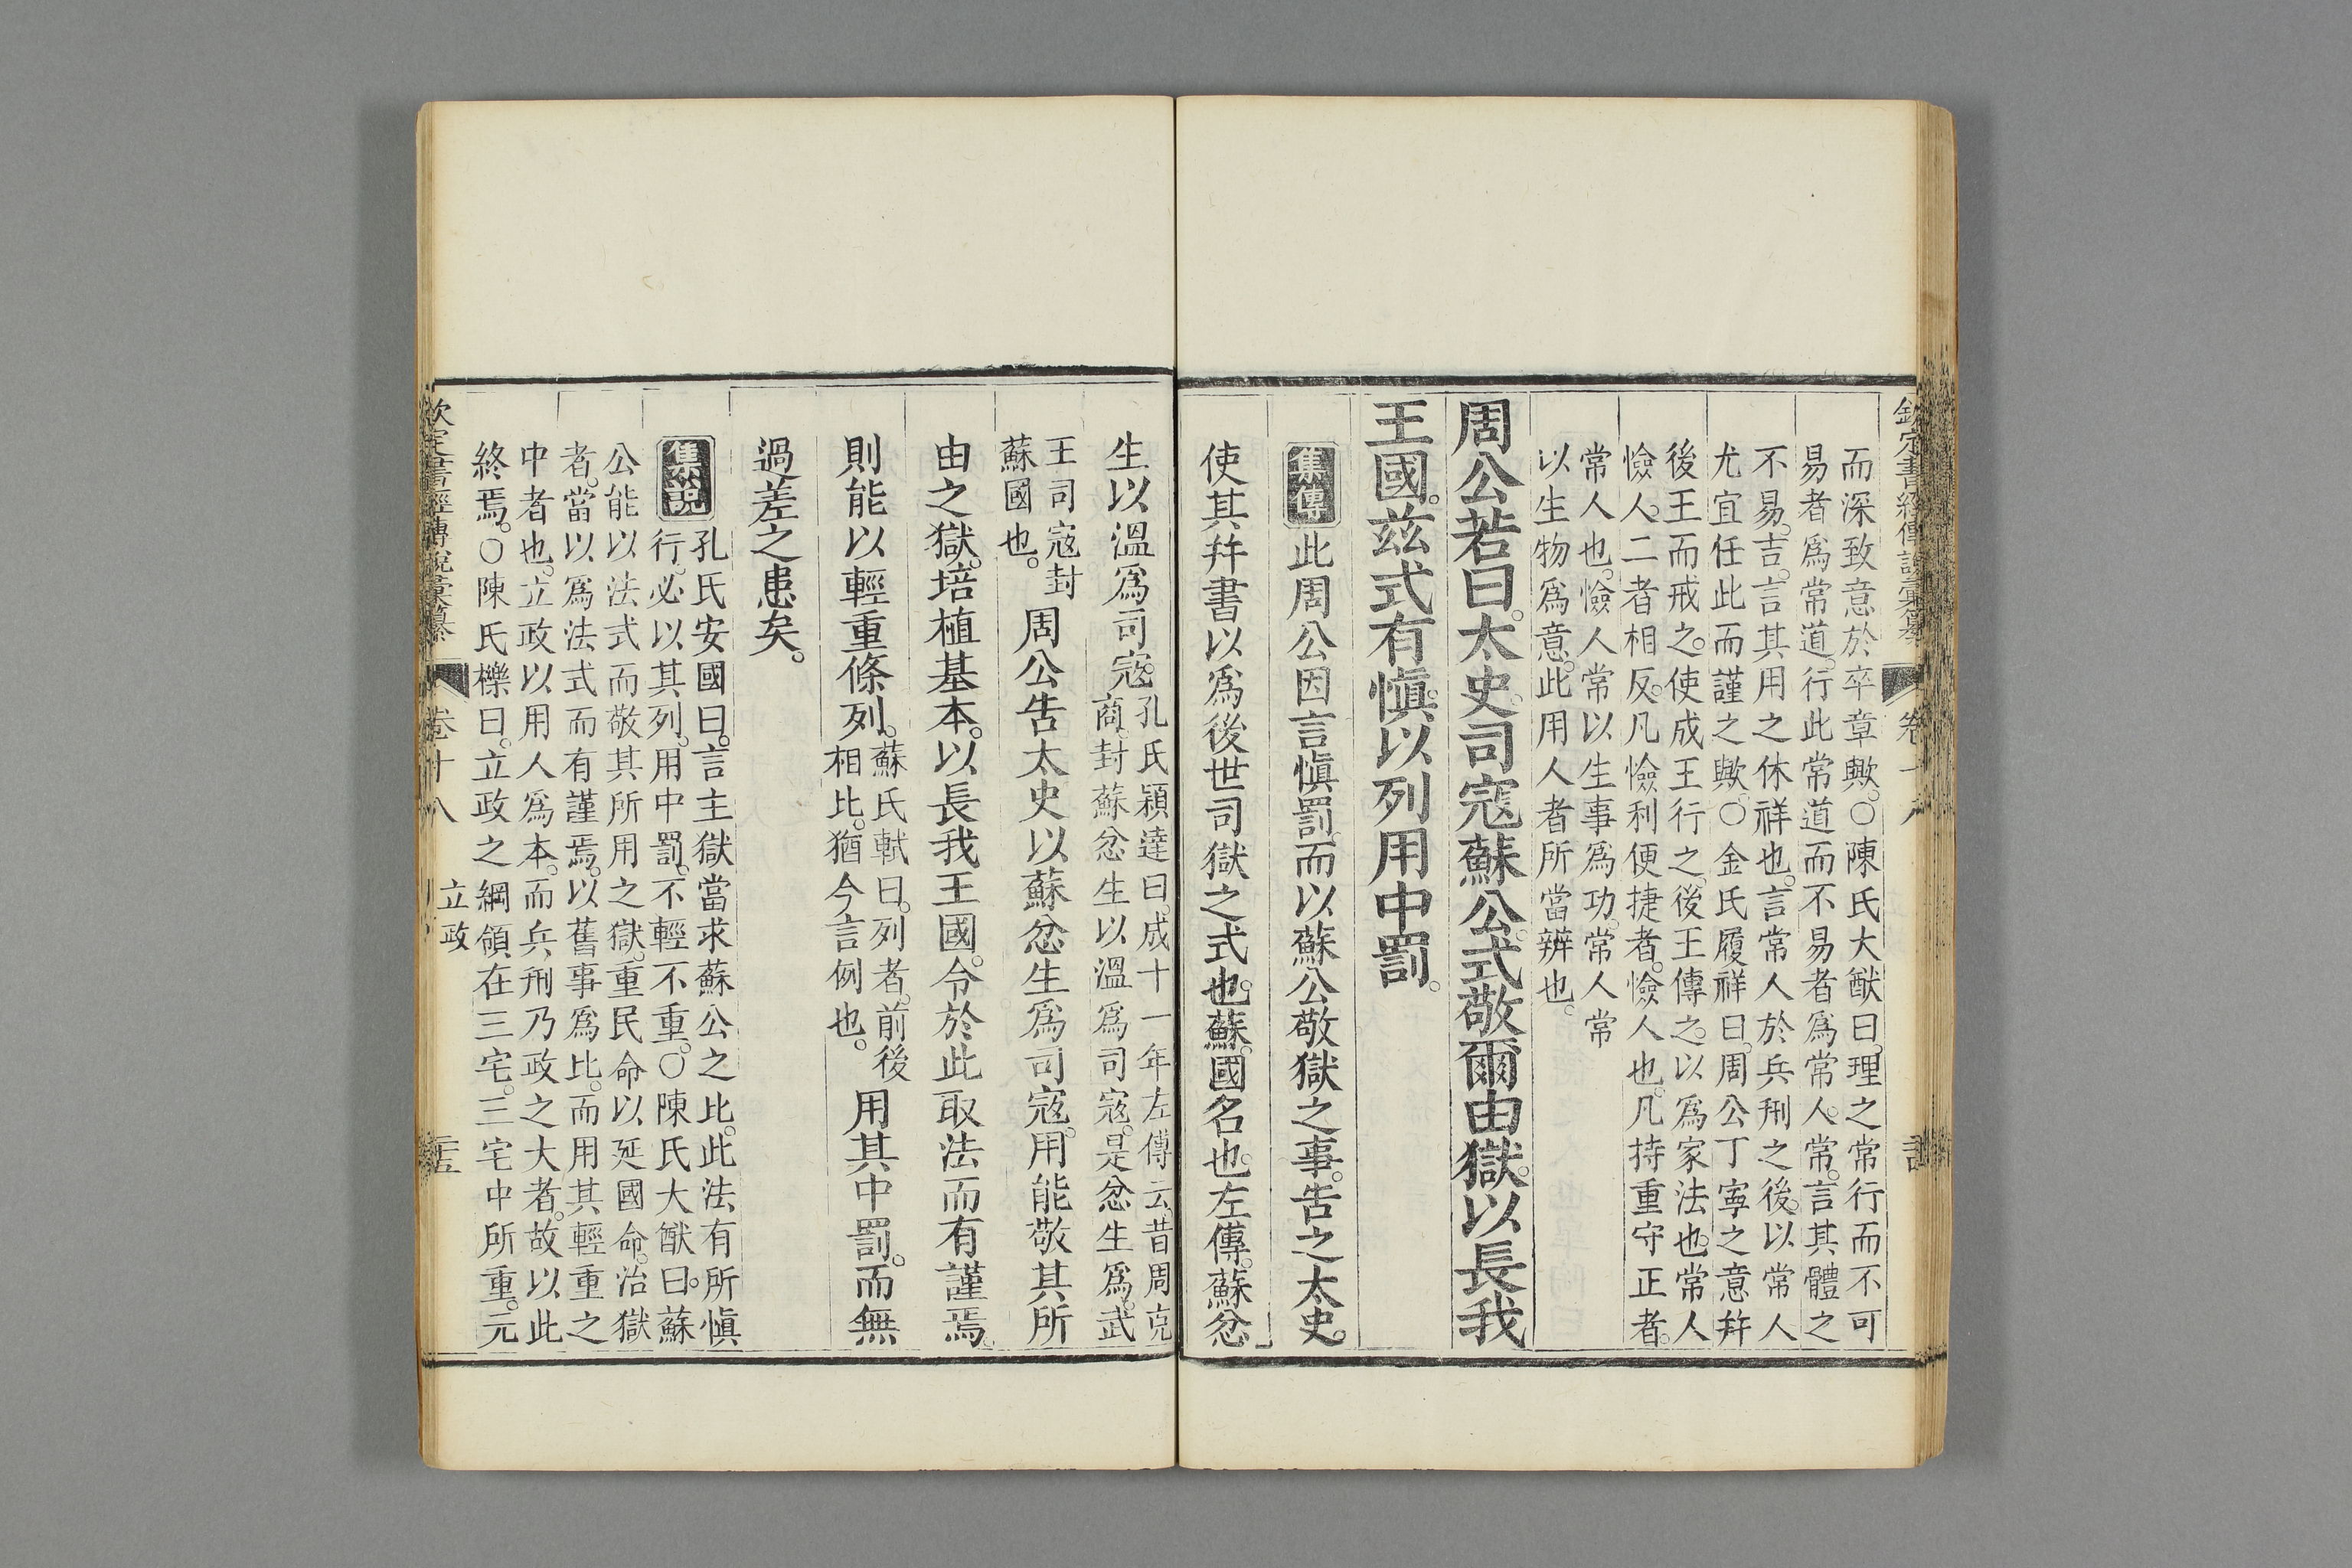 而深致意於卒章歟。○陳氏大猷曰。理之常行而不可
易者爲常道。行此常道而不易者爲常人。常。言其體之
不易。吉。言其用之休祥也。言常人於兵刑之後。以常人
尤宜任此而謹之歟。○金氏履祥曰。周公丁寧之意。幷
後王而戒之。使成王行之。後王傳之。以爲家法也。常人
憸人。二者相反。凡憸利便捷者。憸人也。凡持重守正者。
常人也。憸人常以生事爲功。常人常
以生物爲意。此用人者所當辨也。
周公若曰。太史。司寇蘇公。式敬爾由獄。以長我
王國。茲式有愼。以列用中罰。
集傳 此周公因言愼罰。而以蘇公敬獄之事。告之太史。
使其幷書以爲後世司獄之式也。蘇。國名也。左傳。蘇忿
生以溫爲司寇。孔氏穎達曰。成十一年左傳云昔周克
商。封蘇忿生以溫爲司寇。是忿生爲。武
王司寇封
蘇國也。周公告太史以蘇忿生爲司寇。用能敬其所
由之獄。培植基本。以長我王國。令於此取法而有謹焉。
則能以輕重條列。蘇氏軾曰。列者。前後
相比。猶今言例也。用其中罰。而無
過差之患矣。
集說 孔氏安國曰。言主獄當求蘇公之比。此法有所愼
行。必以其列。用中罰。不輕不重。○陳氏大猷曰。蘇
公能以法式而敬其所用之獄。重民命以延國命。治獄
者。當以爲法式而有謹焉。以舊事爲比。而用其輕重之
中者也。立政以用人爲本。而兵刑乃政之大者。故以此
終焉。○陳氏櫟曰。立政之綱領在三宅。三宅中所重。元
欽定書經傳說彙纂 卷十八 立政